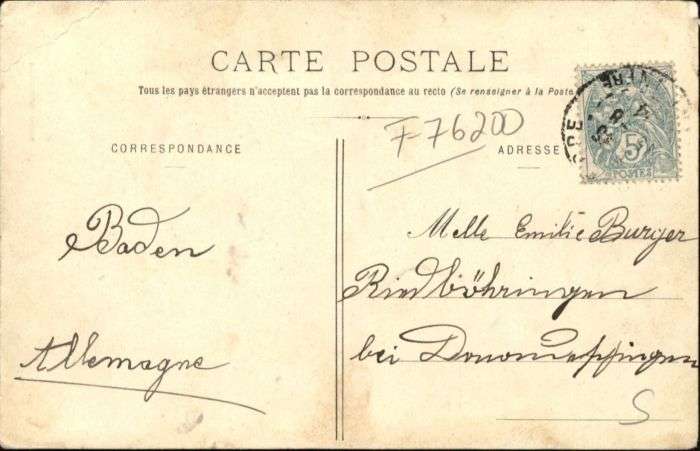 CARTE POSTALE
Tous les pays étrangers n'acceptent pas la correspondance au recto (Se renseigner à la Poste
F-76200
CORRESPONDANCE
ADRESSE
5
POSTES
Baden
Allemagne
Melle Emilie Burger
Riedböhringen
bei
S